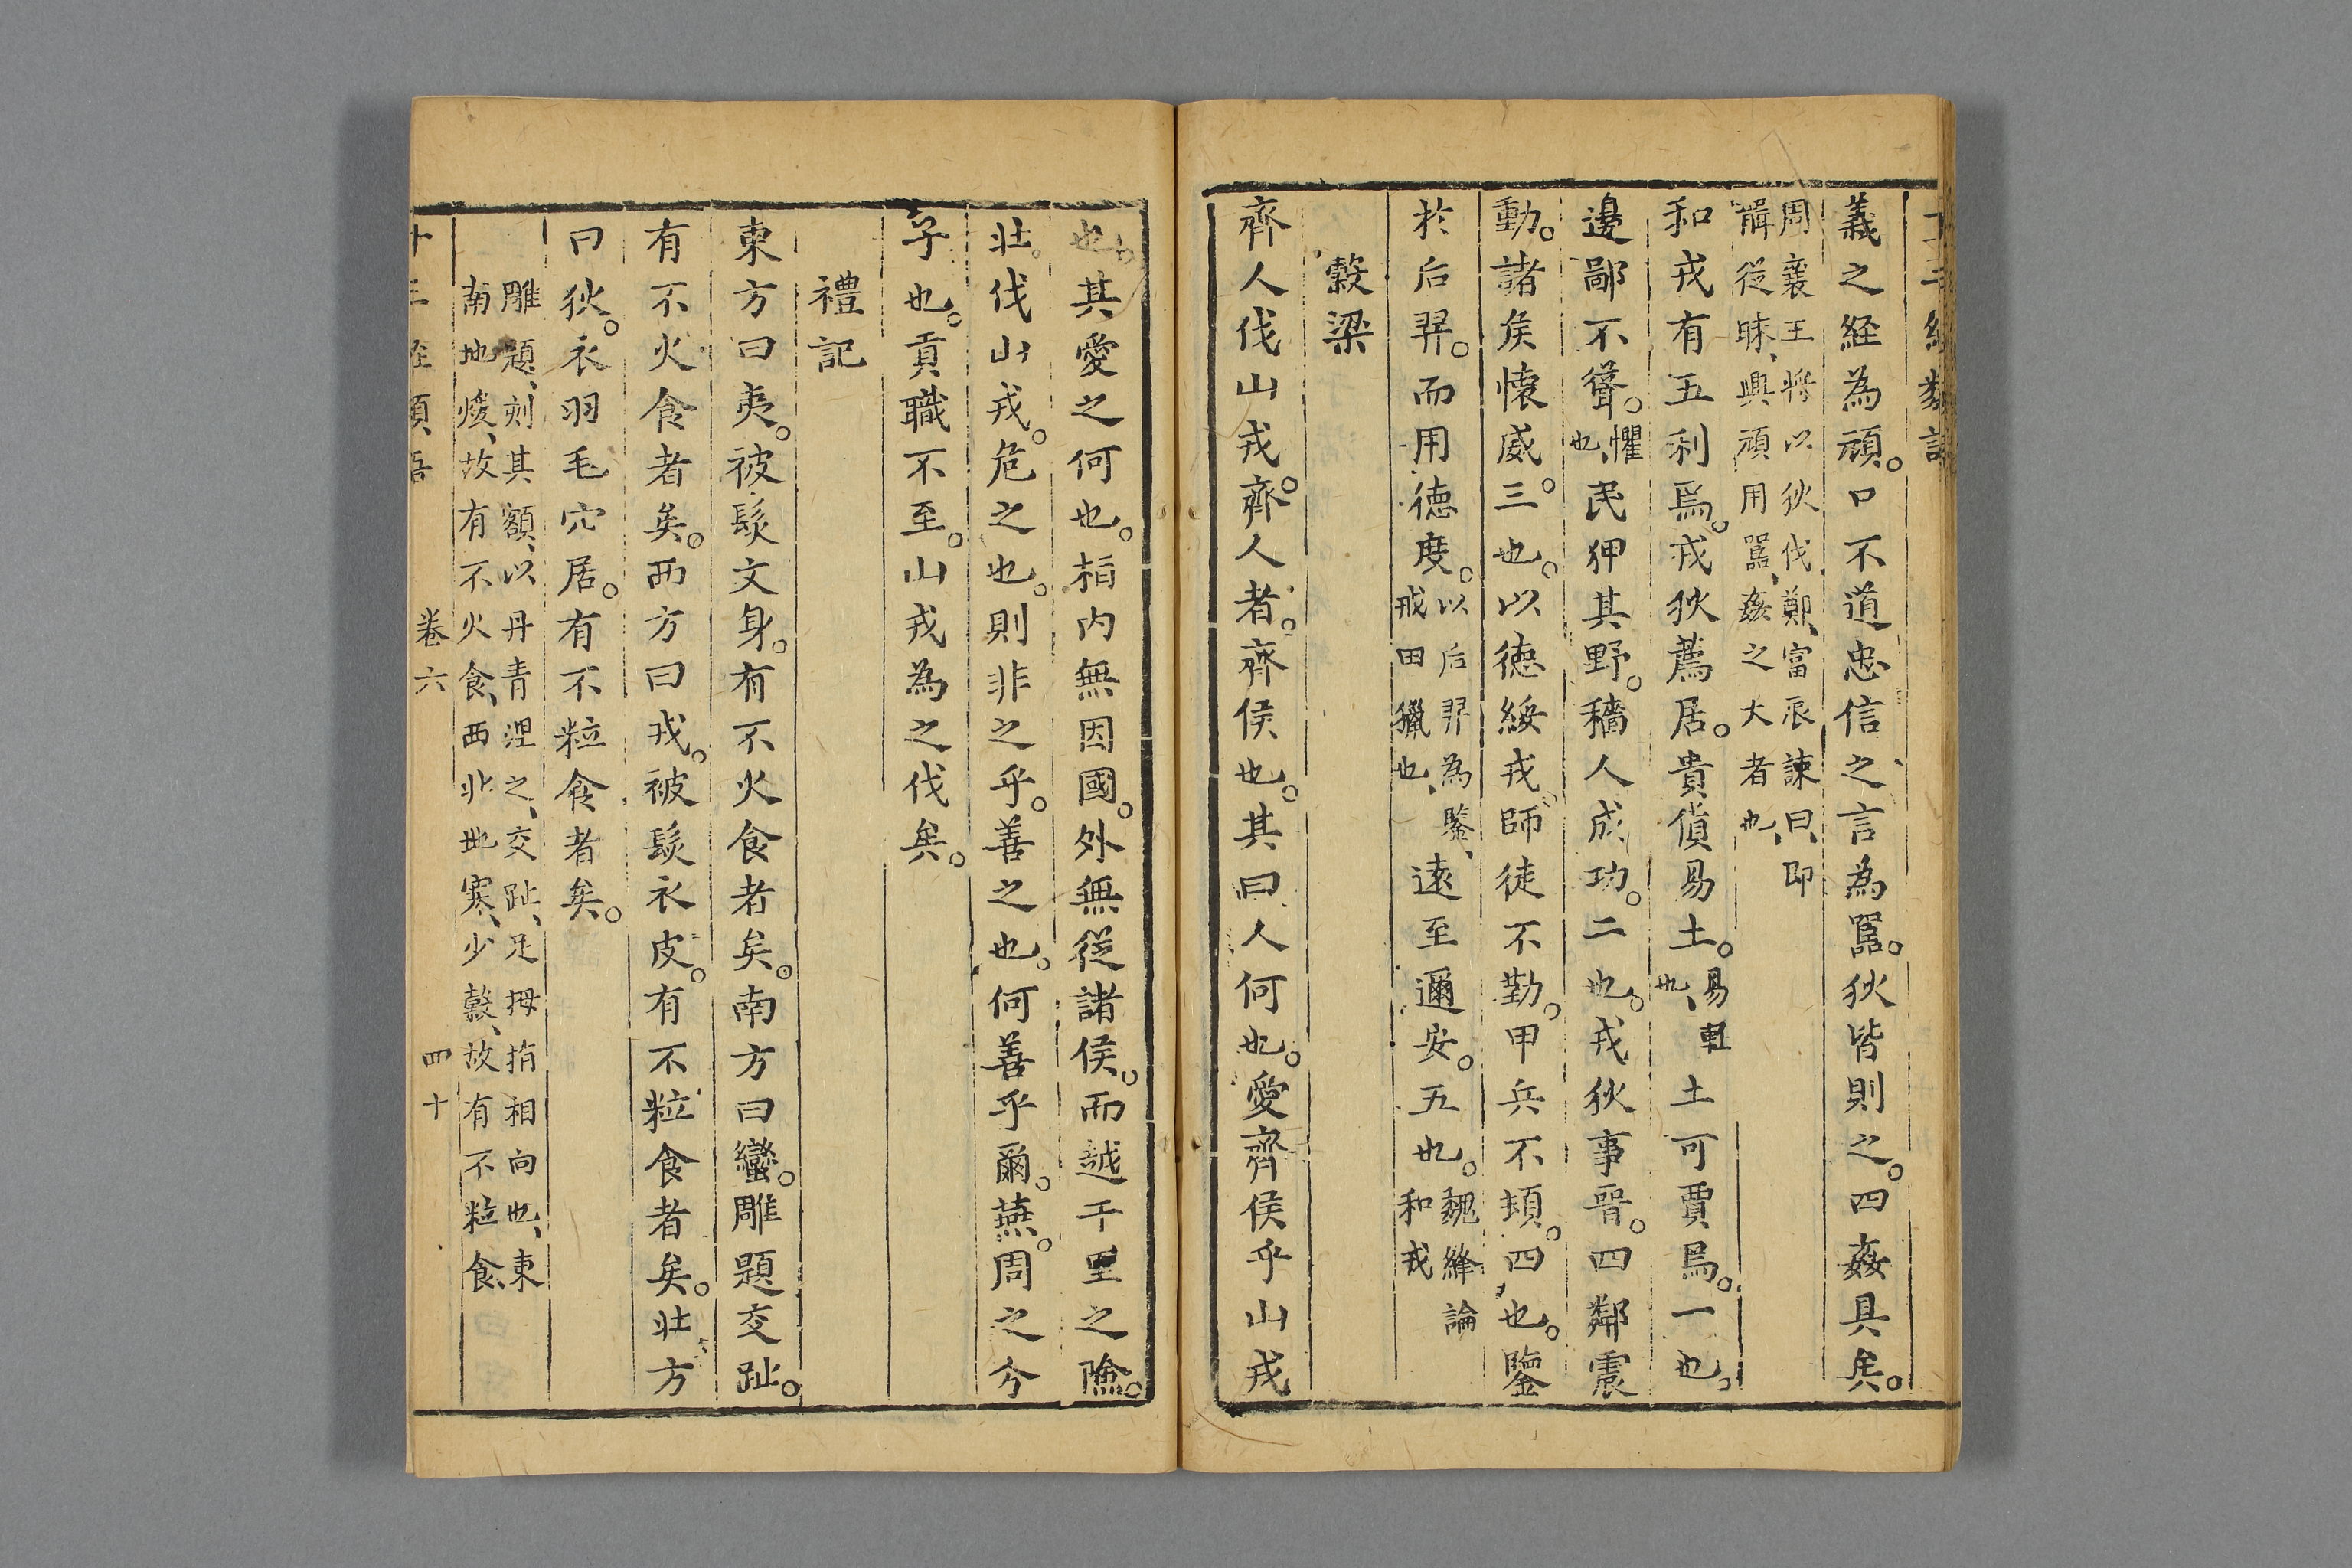 義之経為頑。口不道忠信之言為嚚。狄皆則之。四姦具矣。
周襄王将以狄伐鄭、富辰諫曰、即
聾従昧、與頑用嚚、姦之大者也、
和戎有五利焉。戎狄薦居。貴貨易土。易軽也、土可賈焉。一也。
邊鄙不聳。懼也、民狎其野。穡人成功。二也。戎狄事晋。四鄰震
動。諸矦懐威三也。以徳綏戎。師徒不勤。甲兵不頓。四也。鑒
於后羿。而用徳度。以后羿為鑒、戒田獵也、遠至邇安。五也。魏絳論和戎
穀梁
齊人伐山戎。齊人者。齊侯也。其曰人何也。愛齊侯乎山戎
也。其愛之何也。桓内無因國。外無従諸侯。而越千里之險。
北。伐山戎。危之也。則非之乎。善之也。何善乎爾。燕。周之分
子也。貢職不至。山戎為之伐矣。
禮記
東方曰夷。被髪文身。有不火食者矣。南方曰蠻。雕題交趾。
有不火食者矣。西方曰戎。被髪衣皮。有不粒食者矣。北方
曰狄。衣羽毛穴居。有不粒食者矣。
雕題、刻其額、以丹青涅之、交趾、足拇指相向也、東
南地煖、故有不火食、西北地寒、少穀、故有不粒食
卷六
四十